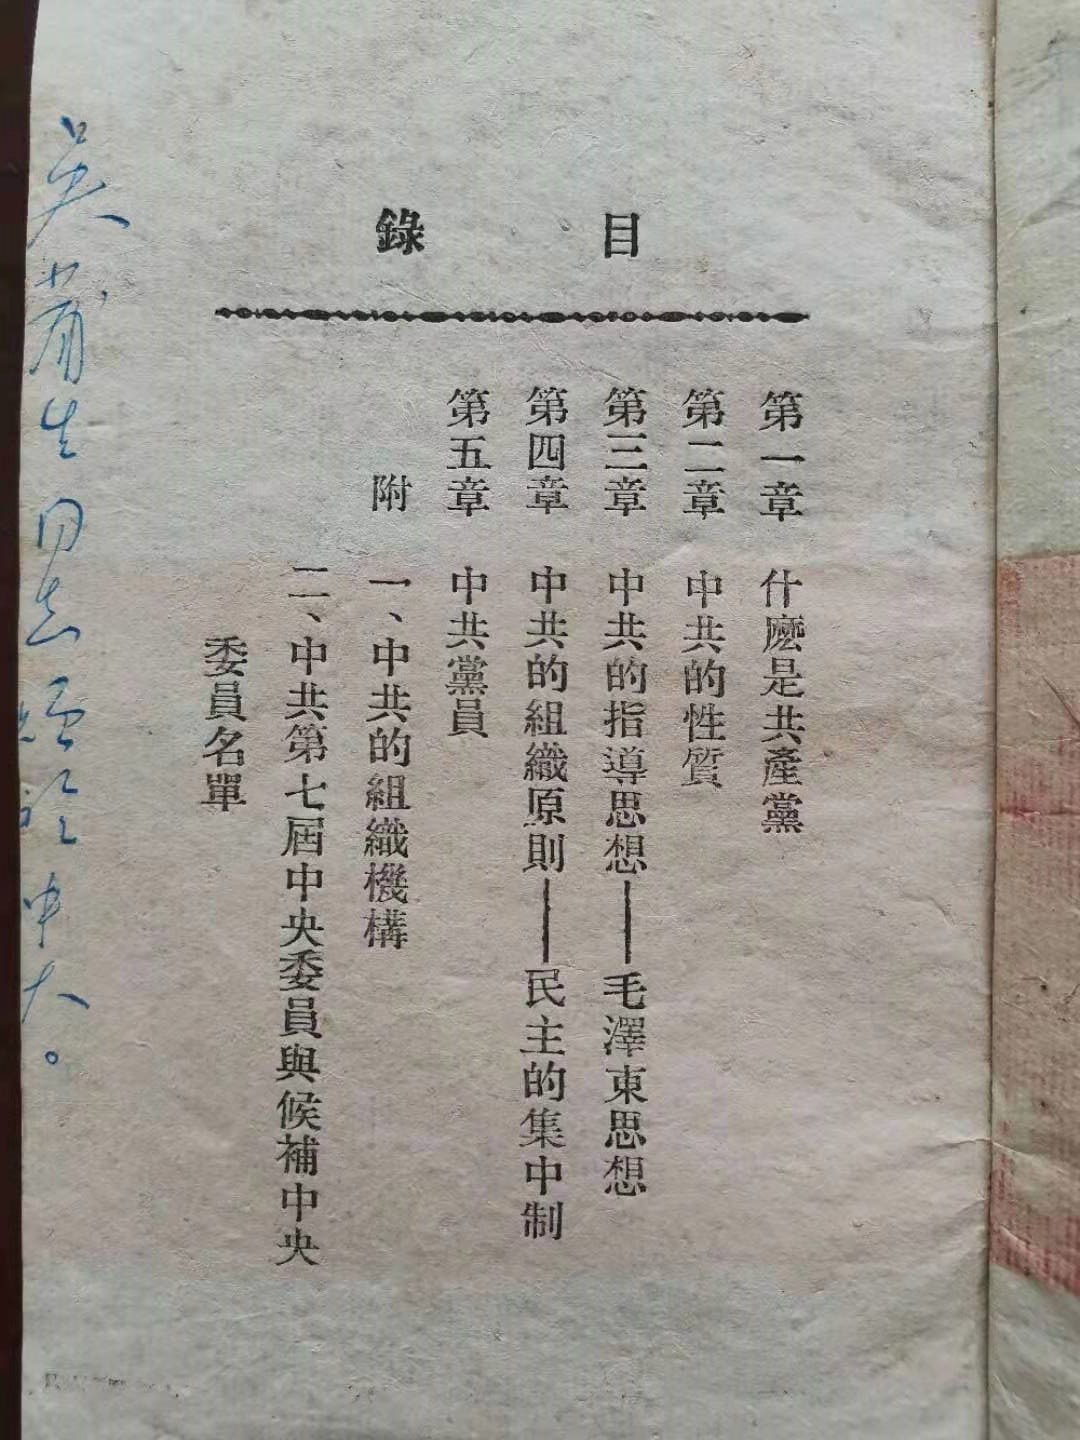 目錄
第一章 什麽是共產黨
第二章 中共的性質
第三章 中共的指導思想——毛澤東思想
第四章 中共的組織原則——民主的集中制
第五章 中共黨員
附 一、中共的組織機構
二、中共第七屆中央委員與候補中央
委員名單
吴蒲生同志 於中大。